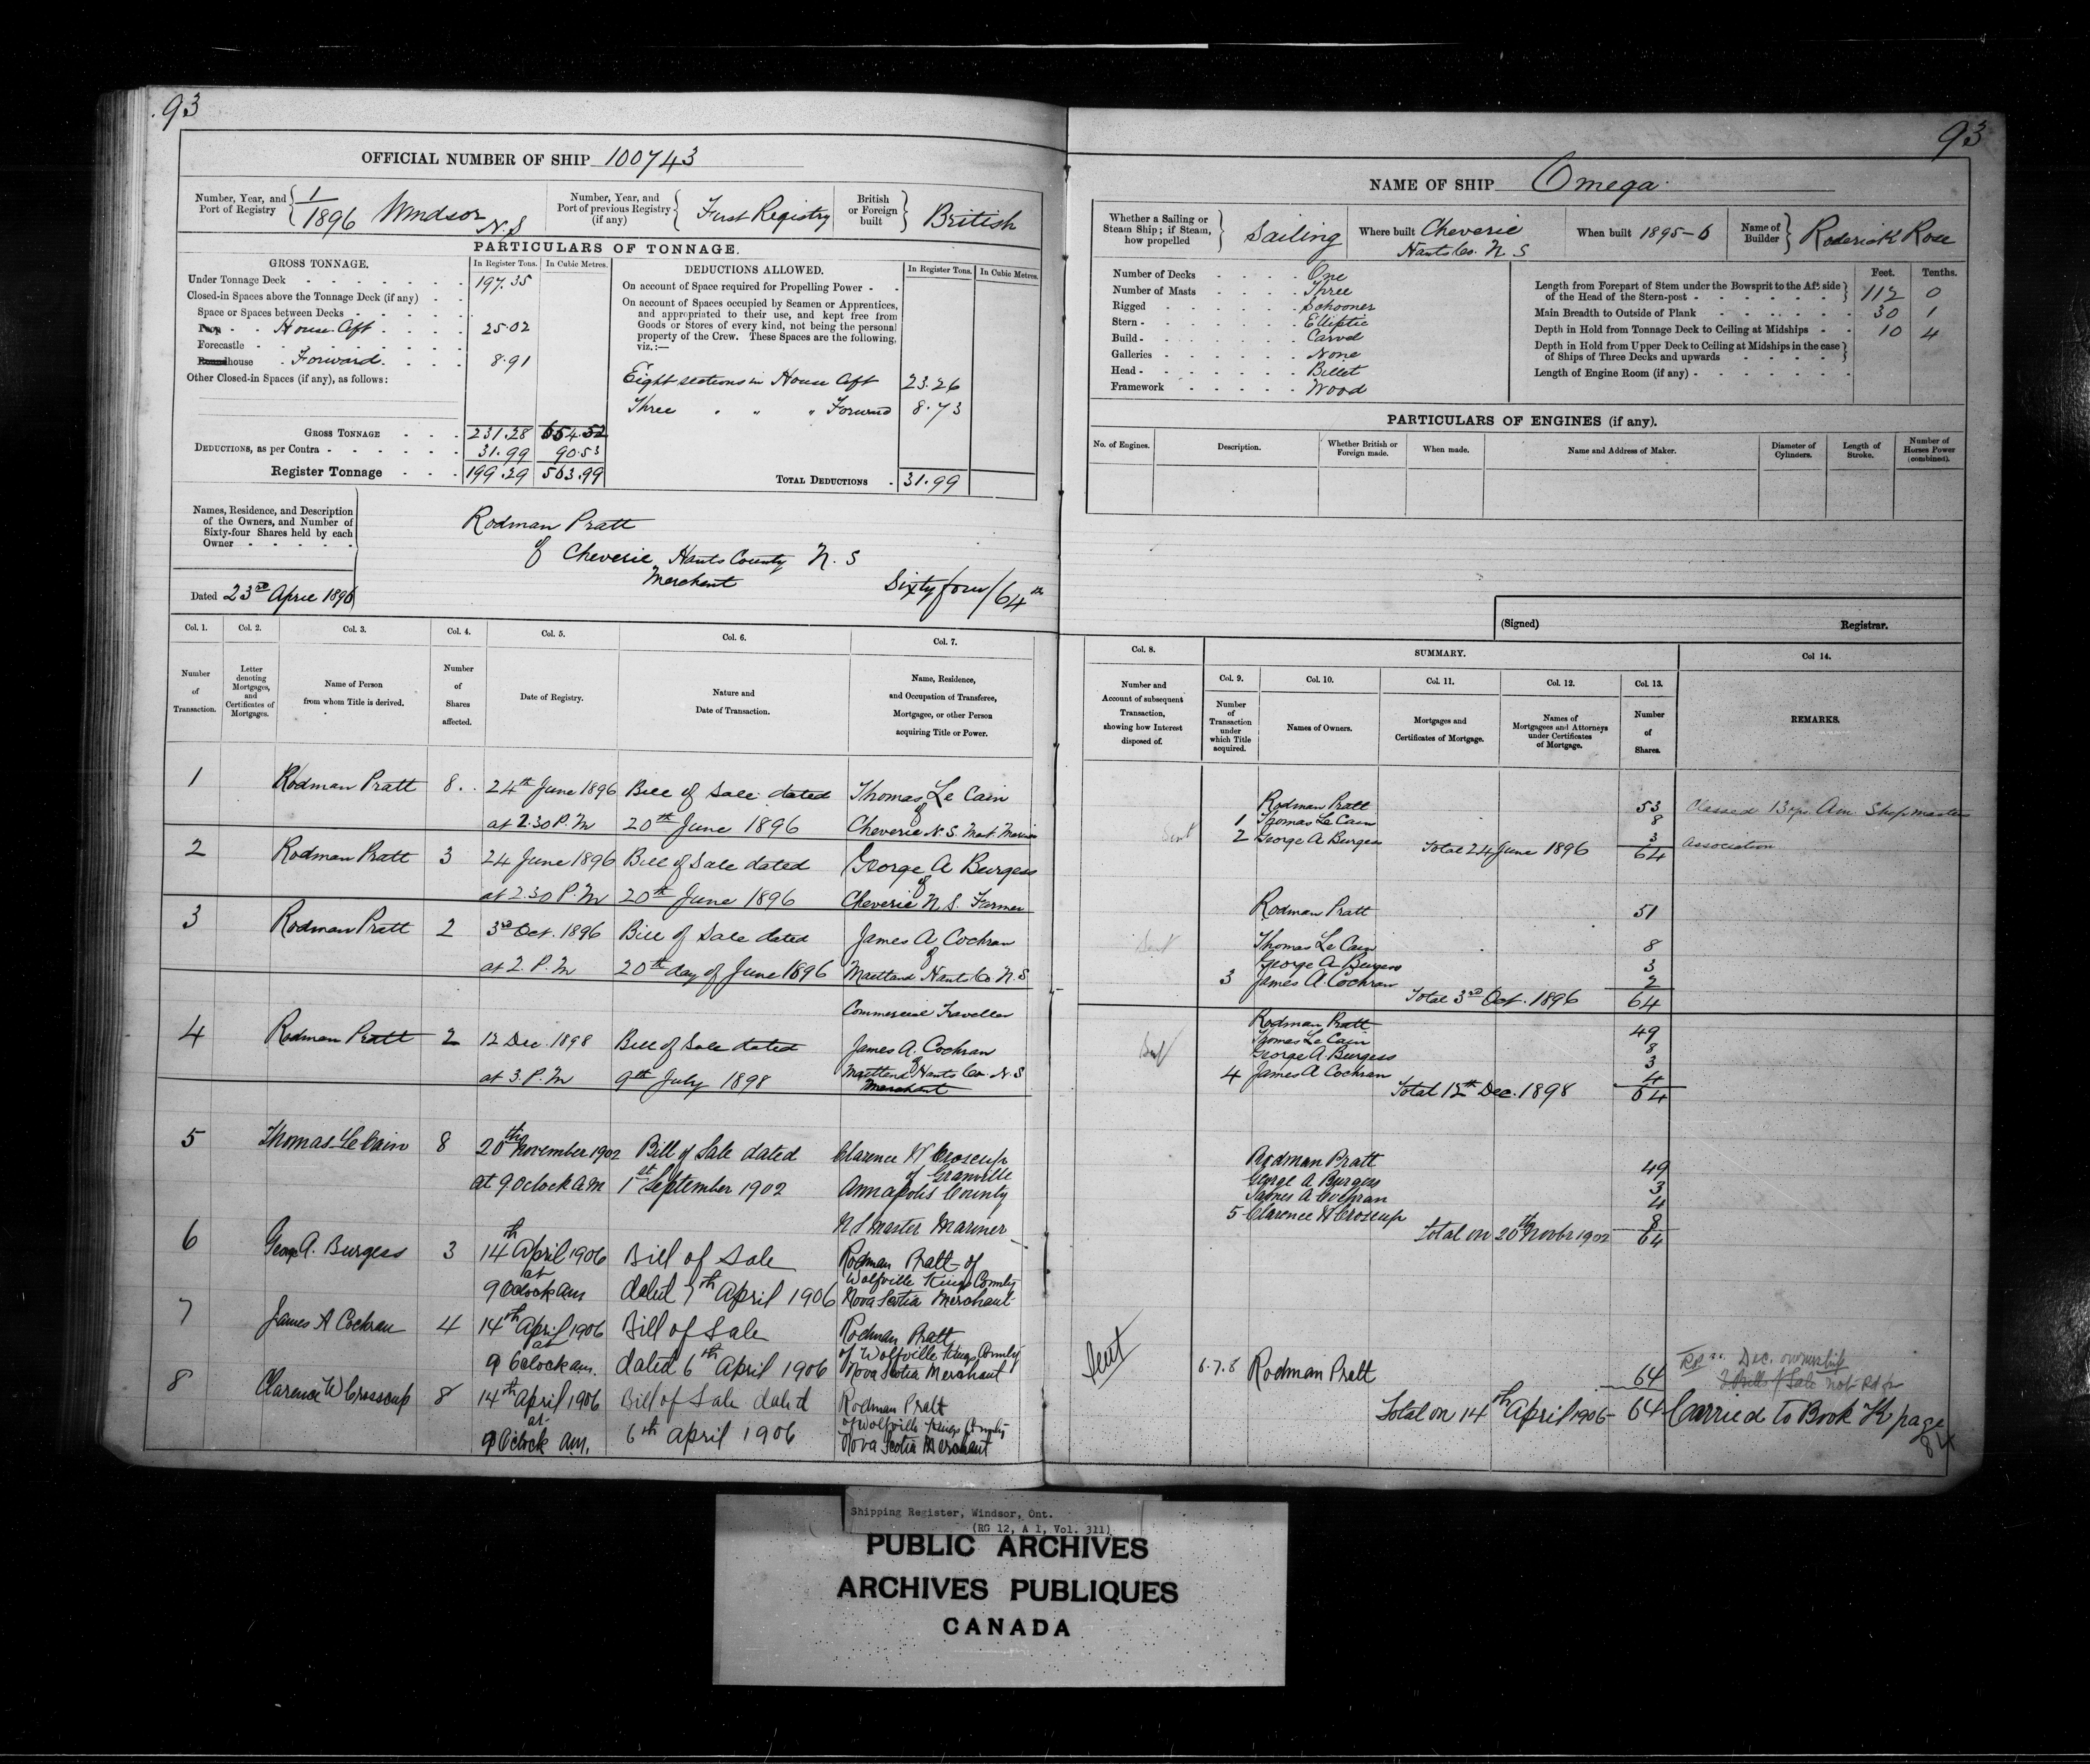 93
OFFICIAL NUMBER OF SHIP 100743
Number, Year, and Port of Registry 1/1896 Windsor N.S
Number, Year, and Port of previous Registry (if any) First Registry
British or Foreign built British
PARTICULARS OF TONNAGE.
GROSS TONNAGE. In Register Tons. In Cubic Metres.
Under Tonnage Deck 197.35
Closed-in Spaces above the Tonnage Deck (if any)
Space or Spaces between Decks
Poop House Aft 25.02
Forecastle
Roundhouse Forward 8.91
Other Closed-in Spaces (if any), as follows:
GROSS TONNAGE 231.28 654.52
DEDUCTIONS, as per Contra 31.99 90.53
Register Tonnage 199.29 563.99
DEDUCTIONS ALLOWED. In Register Tons. In Cubic Metres.
On account of Space required for Propelling Power
On account of Spaces occupied by Seamen or Apprentices,
and appropriated to their use, and kept free from
Goods or Stores of every kind, not being the personal
property of the Crew. These Spaces are the following,
viz.:—
Eight sections in House Aft 23.26
Three " " " Forward 8.73
TOTAL DEDUCTIONS 31.99
Names, Residence, and Description
of the Owners, and Number of
Sixty-four Shares held by each
Owner
Rodman Pratt
of Cheverie Hants County N.S
Merchant Sixty four/64th
Dated 23rd April 1896
Col. 1. Col. 2. Col. 3. Col. 4. Col. 5. Col. 6. Col. 7.
Number of Transaction.
Letter denoting Mortgages, and Certificates of Mortgages.
Name of Person from whom Title is derived.
Number of Shares affected.
Date of Registry.
Nature and Date of Transaction.
Name, Residence, and Occupation of Transferee, Mortgagee, or other Person acquiring Title or Power.
1 Rodman Pratt 8 24th June 1896 Bill of Sale dated Thomas Le Cain
of
at 2.30 P.M 20th June 1896 Cheverie N.S. Mast Mariner
2 Rodman Pratt 3 24 June 1896 Bill of Sale dated George A Burgess
of
at 2.30 P.M 20th June 1896 Cheverie N.S. Farmer
3 Rodman Pratt 2 3rd Oct. 1896 Bill of Sale dated James A Cochran
of
at 2. P.M 20th day of June 1896 Maitland Hants Co N.S
Commercial Traveller
4 Rodman Pratt 2 12 Dec. 1898 Bill of Sale dated James A. Cochran
of
at 3. P.M 9th July 1898 Maitland Hants Co. N.S
Merchant
5 Thomas LeCain 8 20th November 1902 Bill of Sale dated Clarence W Croscup
of Granville
at 9 Oclock AM 1st September 1902 Annapolis County
N S Master Mariner
6 George A. Burgess 3 14th April 1906 Bill of Sale Rodman Pratt of
at Wolfville Kings County
9 Oclock am dated 7th April 1906 Nova Scotia Merchant
7 James A Cochran 4 14th April 1906 Bill of Sale Rodman Pratt
at of Wolfville Kings County
9 Oclock am. dated 6th April 1906 Nova Scotia Merchant
8 Clarence W Crosscup 8 14th April 1906 Bill of Sale dated Rodman Pratt
at of Wolfville Kings County
9 Oclock am. 6th April 1906 Nova Scotia Merchant
93
NAME OF SHIP Omega
Whether a Sailing or Steam Ship; if Steam, how propelled Sailing
Where built Cheverie Hants Co. N S
When built 1895-6
Name of Builder Roderick Rose
Number of Decks One
Number of Masts Three
Rigged Schooner
Stern Elliptic
Build Carvel
Galleries None
Head Billet
Framework Wood
Feet. Tenths.
Length from Forepart of Stem under the Bowsprit to the Aft side
of the Head of the Stern-post 112 0
Main Breadth to Outside of Plank 30 1
Depth in Hold from Tonnage Deck to Ceiling at Midships 10 4
Depth in Hold from Upper Deck to Ceiling at Midships in the case
of Ships of Three Decks and upwards
Length of Engine Room (if any)
PARTICULARS OF ENGINES (if any).
No. of Engines. Description. Whether British or Foreign made. When made. Name and Address of Maker. Diameter of Cylinders. Length of Stroke. Number of Horses Power (combined).
(Signed) Registrar.
Col. 8. SUMMARY. Col 14.
Col. 9. Col. 10. Col. 11. Col. 12. Col. 13.
Number and Account of subsequent Transaction, showing how Interest disposed of.
Number of Transaction under which Title acquired.
Names of Owners.
Mortgages and Certificates of Mortgage.
Names of Mortgagees and Attorneys under Certificates of Mortgage.
Number of Shares.
REMARKS.
Rodman Pratt 53 Classed 13 yrs Am Shipmasters
1 Thomas Le Cain 8
Sent 2 George A Burgess 3 Association
Total 24 June 1896 64
Rodman Pratt 51
Sent Thomas Le Cain 8
George A Burgess 3
3 James A. Cochran 2
Total 3rd Oct. 1896 64
Rodman Pratt 49
Thomas Le Cain 8
Sent George A Burgess 3
4 James A Cochran 4
Total 12th Dec. 1898 64
Rodman Pratt 49
George A Burgess 3
James A Cochran 4
5 Clarence W Croscup 8
Total on 20th Novbr 1902 64
Sent 6.7.8 Rodman Pratt 64
Dec. ownership
3 Bills of Sale not
Total on 14th April 1906 - 64 Carried to Book K page
84
Shipping Register, Windsor, Ont.
(RG 12, A 1, Vol. 311)
PUBLIC ARCHIVES
ARCHIVES PUBLIQUES
CANADA